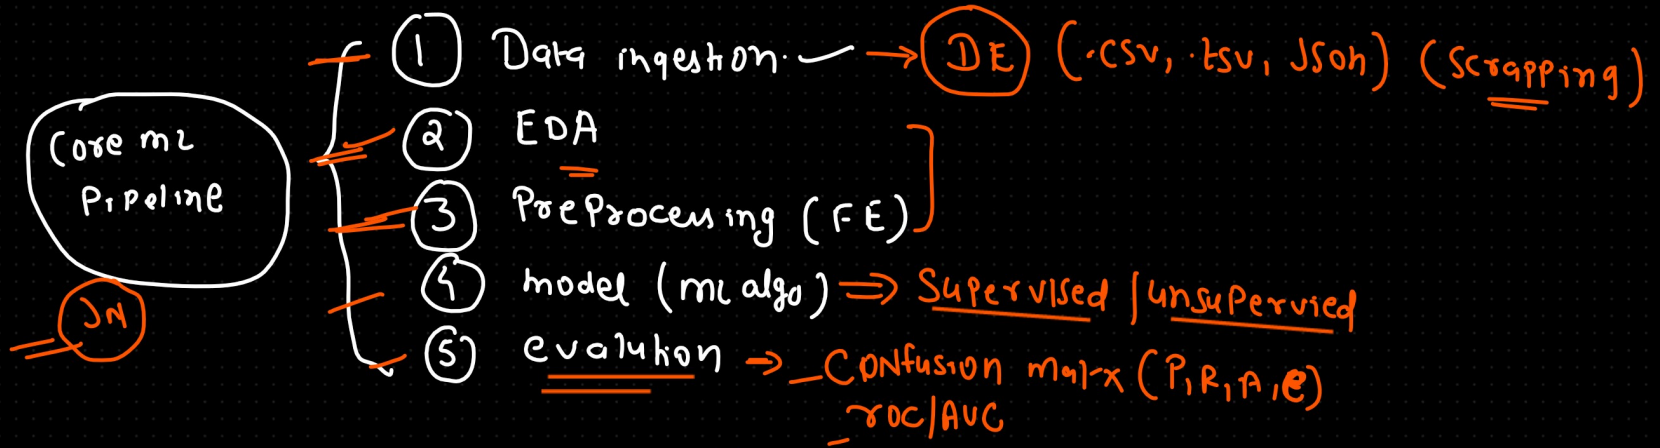 Core ML
Pipeline
JN
1 Data ingestion. → DE (.csv, .tsv, Json) (Scrapping)
2 EDA
3 PreProcessing (FE)
4 model (ML algo) ⇒ Supervised / unsupervied
5 evalution → - Confusion matrx (P, R, A, e)
- roc/AUC